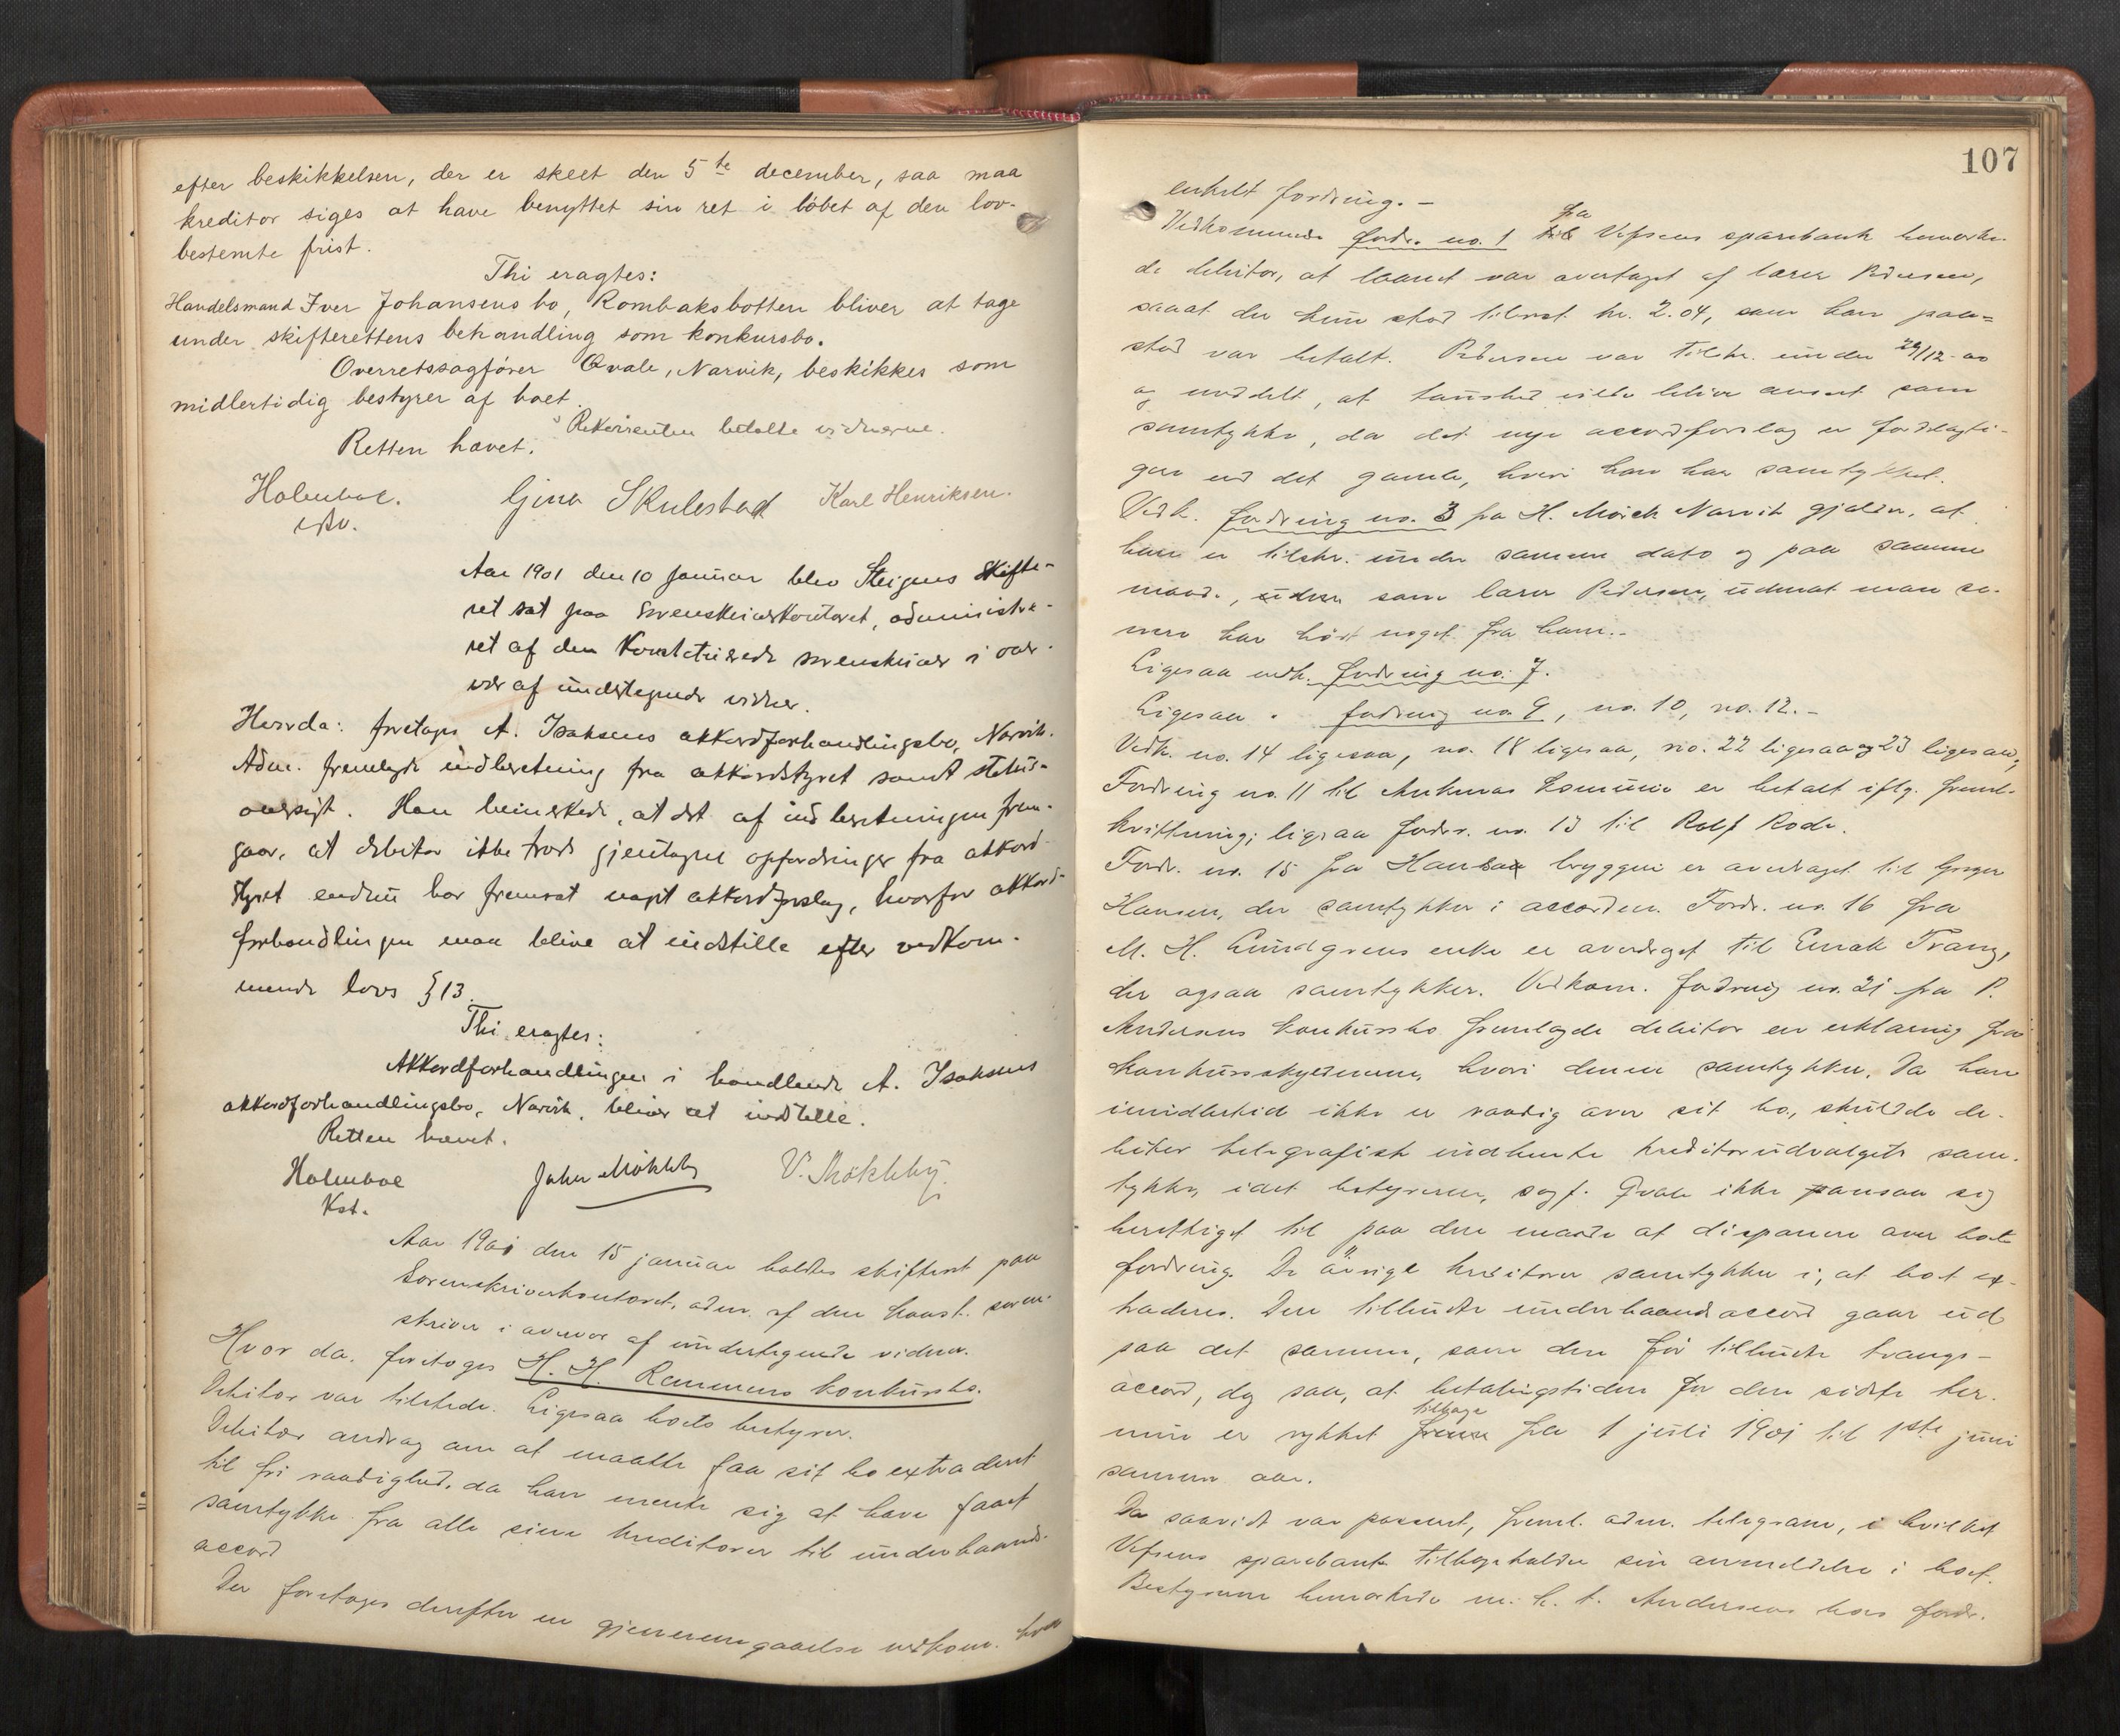 efter beskikkelsen, der er skeet den 5te december, saa maa
kreditor siges at have benyttet sin ret i løbet af den lov-
bestemte frist.
Thi eragtes:
Handelsmand Iver Johansens bo, Rombaksbotten bliver at tage
under skifterettens behandling som konkursbo.
Overretssagfører Qvale, Narvik, beskikkes som
midlertidig bestyrer af boet.
Rekvirenten betalte vidnerne.
Retten hævet.
Holmboe. Gina Skulestad Karl Henriksen.
Aar 1901 den 10 januar blev Steigens Skifte-
ret sat paa sorenskriverkontoret, administre-
ret af den konstituerede sorenskriver i over-
vær af undertegnede vidner.
Hvorda: foretoges A. Isaksens akkordforhandlingsbo, Narvik.
Adm. fremlagde indberetning fra akkordstyret samt status-
oversigt. Han bemerkede, at det af indberetningen frem-
gaar, at debitor ikke trods gjentagne opfordringer fra akkord-
styret endnu har fremsat noget akkordforslag, hvorfor akkord-
forhandlingen maa blive at indstille efter vedkom-
mende lovs § 13.
Thi eragtes:
Akkordforhandlingen i handlende A. Isaksens
akkordforhandlingsbo, Narvik, bliver at indstille.
Retten hævet.
Holmboe John Møkleby V. Møkleby.
Kst.
Aar 1901 den 15 januar holdtes skifteret paa
Sorenskriverkontoret, adm. af den konst. soren-
skriver i overvær af undertegnede vidner.
Hvor da. foretoges H. H. Remmens konkursbo.
Debitor var tilstede. Ligesaa boets bestyrer.
Debitor androg om at maatte faa sit bo extraderet
til fri raadighed, da han mente sig at have faaet
samtykke fra alle sine kreditorer til underhaands-
accord
Der foretoges derefter en gjennemgaaelse vedkom. hver
107
enkelt fordring. -
Vedkommende fordr. no. 1 til fra Vefsens sparebank bemærke-
de debitor, at laanet var overtaget af lærer Pedersen,
saaat der kun stod tilrest kr. 2.04, som han paa=
stod var betalt. Pedersen var tilskr. under 29/12-00
og meddelt, at taushed vilde blive anseet som
samtykke, da det nye accordforslag er fordelagti-
gere end det gamle, hvori han har samtykket.
Vedk. fordring no. 3 fra H. Mörch Narvik gjælder, at
han er tilskr. under samme dato og paa samme
maade, uden som lærer Pedersen, udenat man se-
nere har hørt noget fra ham.-
Ligesaa vedk. fordring no. 7.
Ligesaa " fordring no. 9, no. 10, no. 12. -
Vedk. no. 14 ligesaa, no. 18 ligesaa, no. 22 ligesaa og 23 ligesaa,
Fordring no. 11 til Ankenes kommune er betalt iflg. freml.
kvittering; ligesaa fordr. no. 13 til Rolf Rode.
Fordr. no. 15 fra Hansa bryggeri er overdraget til
Hansen, der samtykker i accorden. Fordr. no. 16 fra
M. H. Lundgrens enke er overdraget til
der ogsaa samtykker. Vedkom. fordring no. 21 fra P.
Andersens konkursbo fremlagde debitor en erklæring fra
konkursskyldneren, hvori denne samtykker. Da han
imidlertid ikke er raadig over sit bo, skulde de-
bitor telegrafisk indhente kreditorudvalgets sam-
tykke, idet bestyreren, sagf. Qvale ikke ansaa sig
berettiget til paa den maade at disponere over boets
fordring. De øvrige kreditorer samtykker i, at boet ex-
traderes. Den tilbudte underhaandsaccord gaar ud
paa det samme, som den før tilbudte tvangs-
accord, dog saa, at betalingstiden for den sidste ter-
min er rykket frem tilbage fra 1 juli 1901 til 1ste juni
samme aar.
Da saavidt var passeret, freml. adm. telegram, i hvilket
Vefsens sparebank tilbageholder sin anmeldelse i boet.
Bestyreren bemærkede m. h. t. Andersens bos fordr.